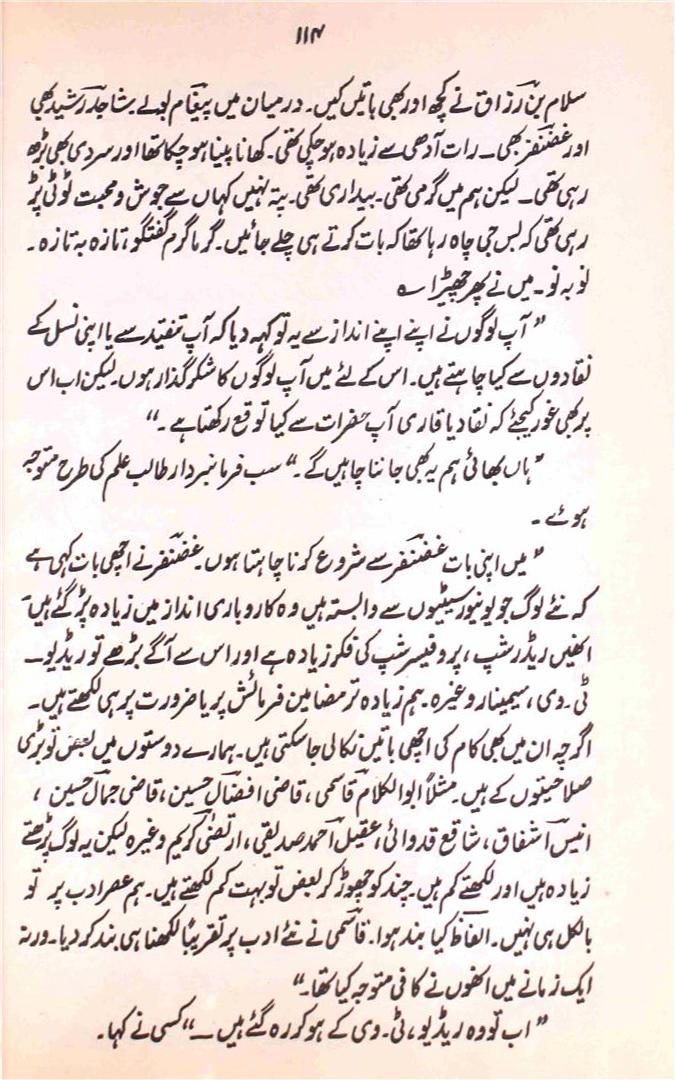 ۱۱۴
سلام بن رزاق نے کچھ اور بھی باتیں کیں۔ درمیان میں پیغام بولے۔ ساجد رشید بھی
اور غضنفر بھی۔ رات آدھی سے زیادہ ہو چکی تھی۔ کھانا پینا ہو چکا تھا اور سردی بھی بڑھ
رہی تھی۔ لیکن ہم میں گرمی تھی۔ بیداری تھی۔ پتہ نہیں کہاں سے جوش و محبت ٹوٹی پڑ
رہی تھی کہ بس جی چاہ رہا تھا کہ بات کرتے ہی چلے جائیں۔ گرما گرم گفتگو، تازہ بہ تازہ۔
نو بہ نو۔ میں نے پھر چھیڑا ـ
”آپ لوگوں نے اپنے اپنے انداز سے یہ تو کہہ دیا کہ آپ تنقید سے یا اپنی نسل کے
نقادوں سے کیا چاہتے ہیں۔ اس کے لئے میں آپ لوگوں کا شکر گذار ہوں۔ لیکن اب اس
پر بھی غور کیجئے کہ نقاد یا قاری آپ حضرات سے کیا توقع رکھتا ہے۔“
”ہاں بھائی ہم یہ بھی جاننا چاہیں گے۔“ سب فرمانبردار طالب علم کی طرح متوجہ
ہوئے۔
”میں اپنی بات غضنفر سے شروع کرنا چاہتا ہوں۔ غضنفر نے اچھی بات کہی ہے
کہ نئے لوگ جو یونیورسیٹیوں سے وابستہ ہیں وہ کاروباری انداز میں زیادہ پڑ گئے ہیں۔
انھیں ریڈر شپ، پروفیسر شپ کی فکر زیادہ ہے اور اس سے آگے بڑھے تو ریڈیو۔
ٹی۔وی، سیمینار وغیرہ۔ ہم زیادہ تر مضامین فرمائش پر یا ضرورت پر ہی لکھتے ہیں۔
اگرچہ ان میں بھی کام کی اچھی باتیں نکالی جا سکتی ہیں۔ ہمارے دوستوں میں بعض تو بڑی
صلاحیتوں کے ہیں۔ مثلاً ابوالکلام قاسمی، قاضی افضال حسین، قاضی جمال حسین،
انیس اشفاق، شافع قدوائی، عقیل احمد صدیقی، ارتضیٰ کریم وغیرہ لیکن یہ لوگ پڑھتے
زیادہ ہیں اور لکھتے کم ہیں۔ چند کو چھوڑ کر بعض تو بہت کم لکھتے ہیں۔ ہم عصر ادب پر تو
بالکل ہی نہیں۔ الفاظ کیا بند ہوا۔ قاسمی نے نئے ادب پر تقریباً لکھنا ہی بند کر دیا۔ ورنہ
ایک زمانے میں انھوں نے کافی متوجہ کیا تھا۔“
”اب تو وہ ریڈیو، ٹی۔وی کے ہو کر رہ گئے ہیں۔“ کسی نے کہا۔